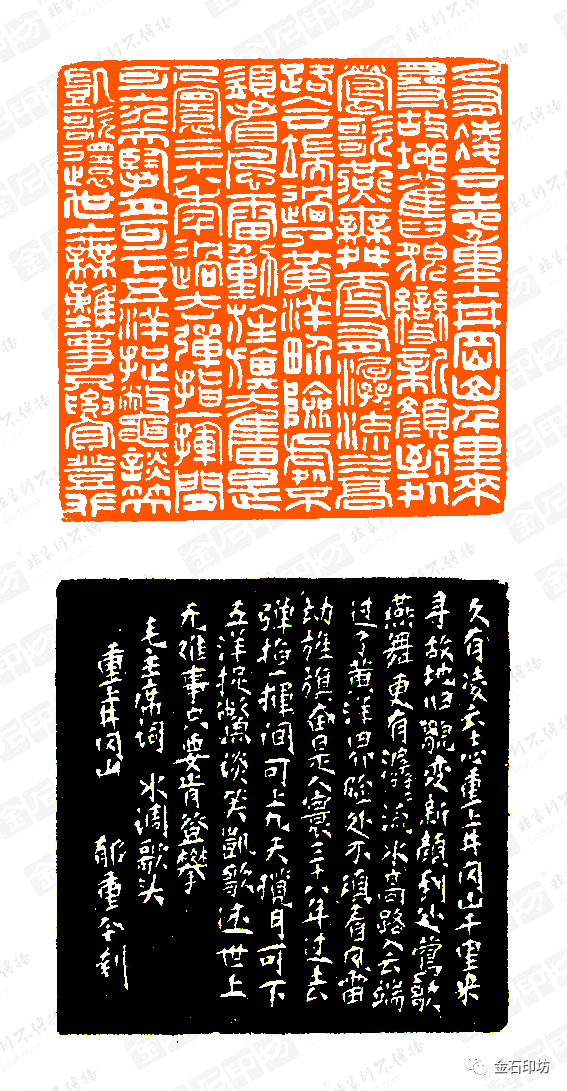 久有凌云志重上井冈山千里来
尋故地舊貌變新顏到處
鶯歌燕舞更有潺潺流水高
路入云端過了黃洋界險處不
須看風雷動旌旗奮是
人寰三十八年過去彈指一揮間
可上九天攬月可下五洋捉鱉談笑
凱歌還世上無難事只要肯登攀
久有凌云志重上井冈山千里来
寻故地旧貌变新颜到处莺歌
燕舞更有潺潺流水高路入云端
过了黄洋界险处不须看风雷
动旌旗奋是人寰三十八年过去
弹指一挥间可上九天揽月可下
五洋捉鳖谈笑凯歌还世上
无难事只要肯登攀
毛主席词 水调歌头
重上井冈山 郁重今刻
金石印坊